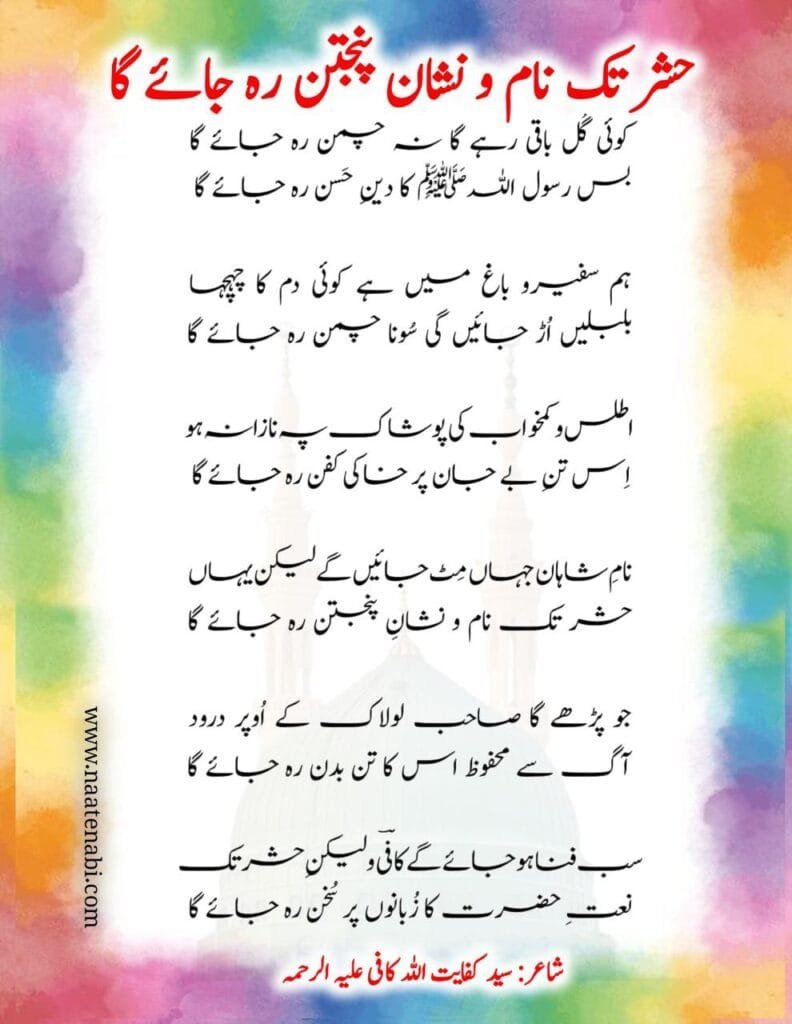 حشر تک نام و نشان پنجتن رہ جائے گا
کوئی گُل باقی رہے گا نہ چمن رہ جائے گا
بس رسول اللہ ﷺ کا دینِ حَسن رہ جائے گا
ہم سفیرو باغ میں ہے کوئی دم کا چہچہا
بلبلیں اُڑ جائیں گی سُونا چمن رہ جائے گا
اطلس و کمخواب کی پوشاک پہ نازا نہ ہو
اِس تنِ بے جان پر خاکی کفن رہ جائے گا
نامِ شاہان جہاں مِٹ جائیں گے لیکن یہاں
حشر تک نام و نشانِ پنجتن رہ جائے گا
جو پڑھے گا صاحب لولاک کے اُوپر درود
آگ سے محفوظ اس کا تن بدن رہ جائے گا
سب فنا ہو جائے گے کافیؔ و لیکن حشر تک
نعتِ حضرت کا زُبانوں پر سُخن رہ جائے گا
شاعر: سید کفایت اللہ کافی علیہ الرحمہ
www.naatenabi.com